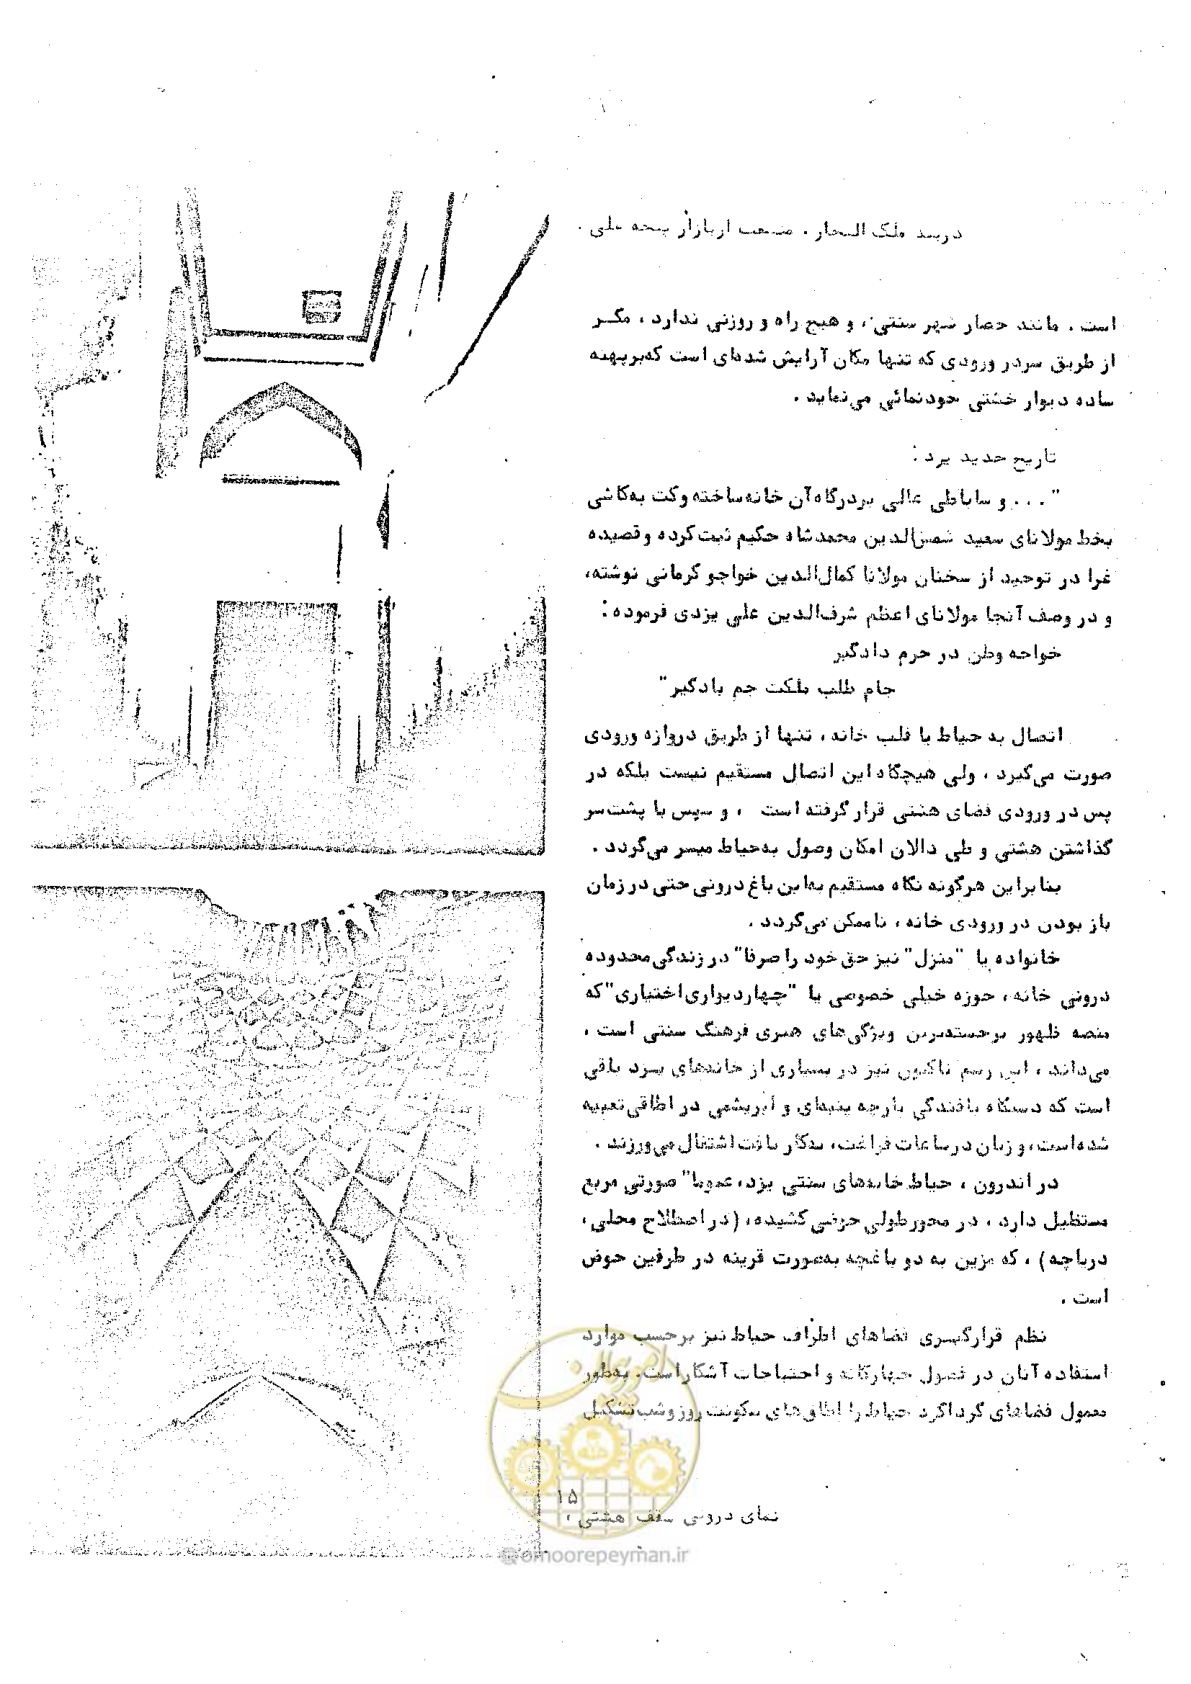 دربند ملک التجار . منشعب از بازار پنجه علی .
است . مانند حصار شهر سنتی ، و هیچ راه و روزنی ندارد ، مگـر
از طریق سردر ورودی که تنها مکان آرایش شده‌ای است که‌بر پهنه
ساده دیوار خشتی خودنمائی می‌نماید .
تاریخ جدید یزد :
" . . . و ساباطی عالی بر درگاه آن خانه ساخته و کت به کاشی
بخط مولانای سعید شمس‌الدین محمد شاه حکیم ثبت کرده و قصیده
غرا در توحید از سخنان مولانا کمال‌الدین خواجو کرمانی نوشته،
و در وصف آنجا مولانای اعظم شرف‌الدین علی یزدی فرموده :
خواجه وطن در حرم دادگیر
جام طلب ملکت جم یادگیر "
اتصال به حیاط یا قلب خانه ، تنها از طریق دروازه ورودی
صورت می‌گیرد ، ولی هیچگاه این اتصال مستقیم نیست بلکه در
پس در ورودی فضای هشتی قرار گرفته است ، و سپس با پشت سر
گذاشتن هشتی و طی دالان امکان وصول به‌حیاط میسر می‌گردد .
بنابراین هرگونه نگاه مستقیم به‌این باغ درونی حتی در زمان
باز بودن در ورودی خانه ، ناممکن می‌گردد .
خانواده یا "منزل" نیز حق خود را صرفا" در زندگی محدوده
درونی خانه ، حوزه خیلی خصوصی یا "چهاردیواری اختیاری" که
منصه ظهور برجسته‌ترین ویژگی‌های هنری فرهنگ سنتی است ،
می‌داند ، این رسم تاکنون نیز در بسیاری از خانه‌های یزد باقی
است که دستگاه بافندگی پارچه پنبه‌ای و ابریشمی در اطاقی تعبیه
شده‌است، و زنان در ساعات فراغت، به‌کار بافت اشتغال می‌ورزند .
در اندرون ، حیاط خانه‌های سنتی یزد، عموما" صورتی مربع
مستطیل دارد ، در محور طولی حوضی کشیده، (در اصطلاح محلی،
دریاچه) ، که مزین به دو باغچه به‌صورت قرینه در طرفین حوض
است .
نظم قرارگیـری فضاهای اطراف حیاط نیز برحسب موارد
استفاده آنان در فصول چهارگانه و احتیاجات آشکار است. به‌طور
معمول فضاهای گرداگرد حیاط را اطاق‌های سکونت روز و شب تشکیل
۱۵
نمای درونی سقف هشتی .
@omoorepeyman.ir